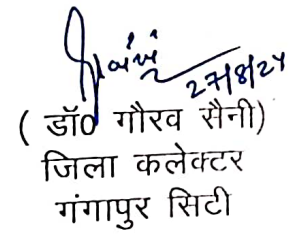 27/8/24
( डॉ0 गौरव सैनी)
जिला कलेक्टर
गंगापुर सिटी